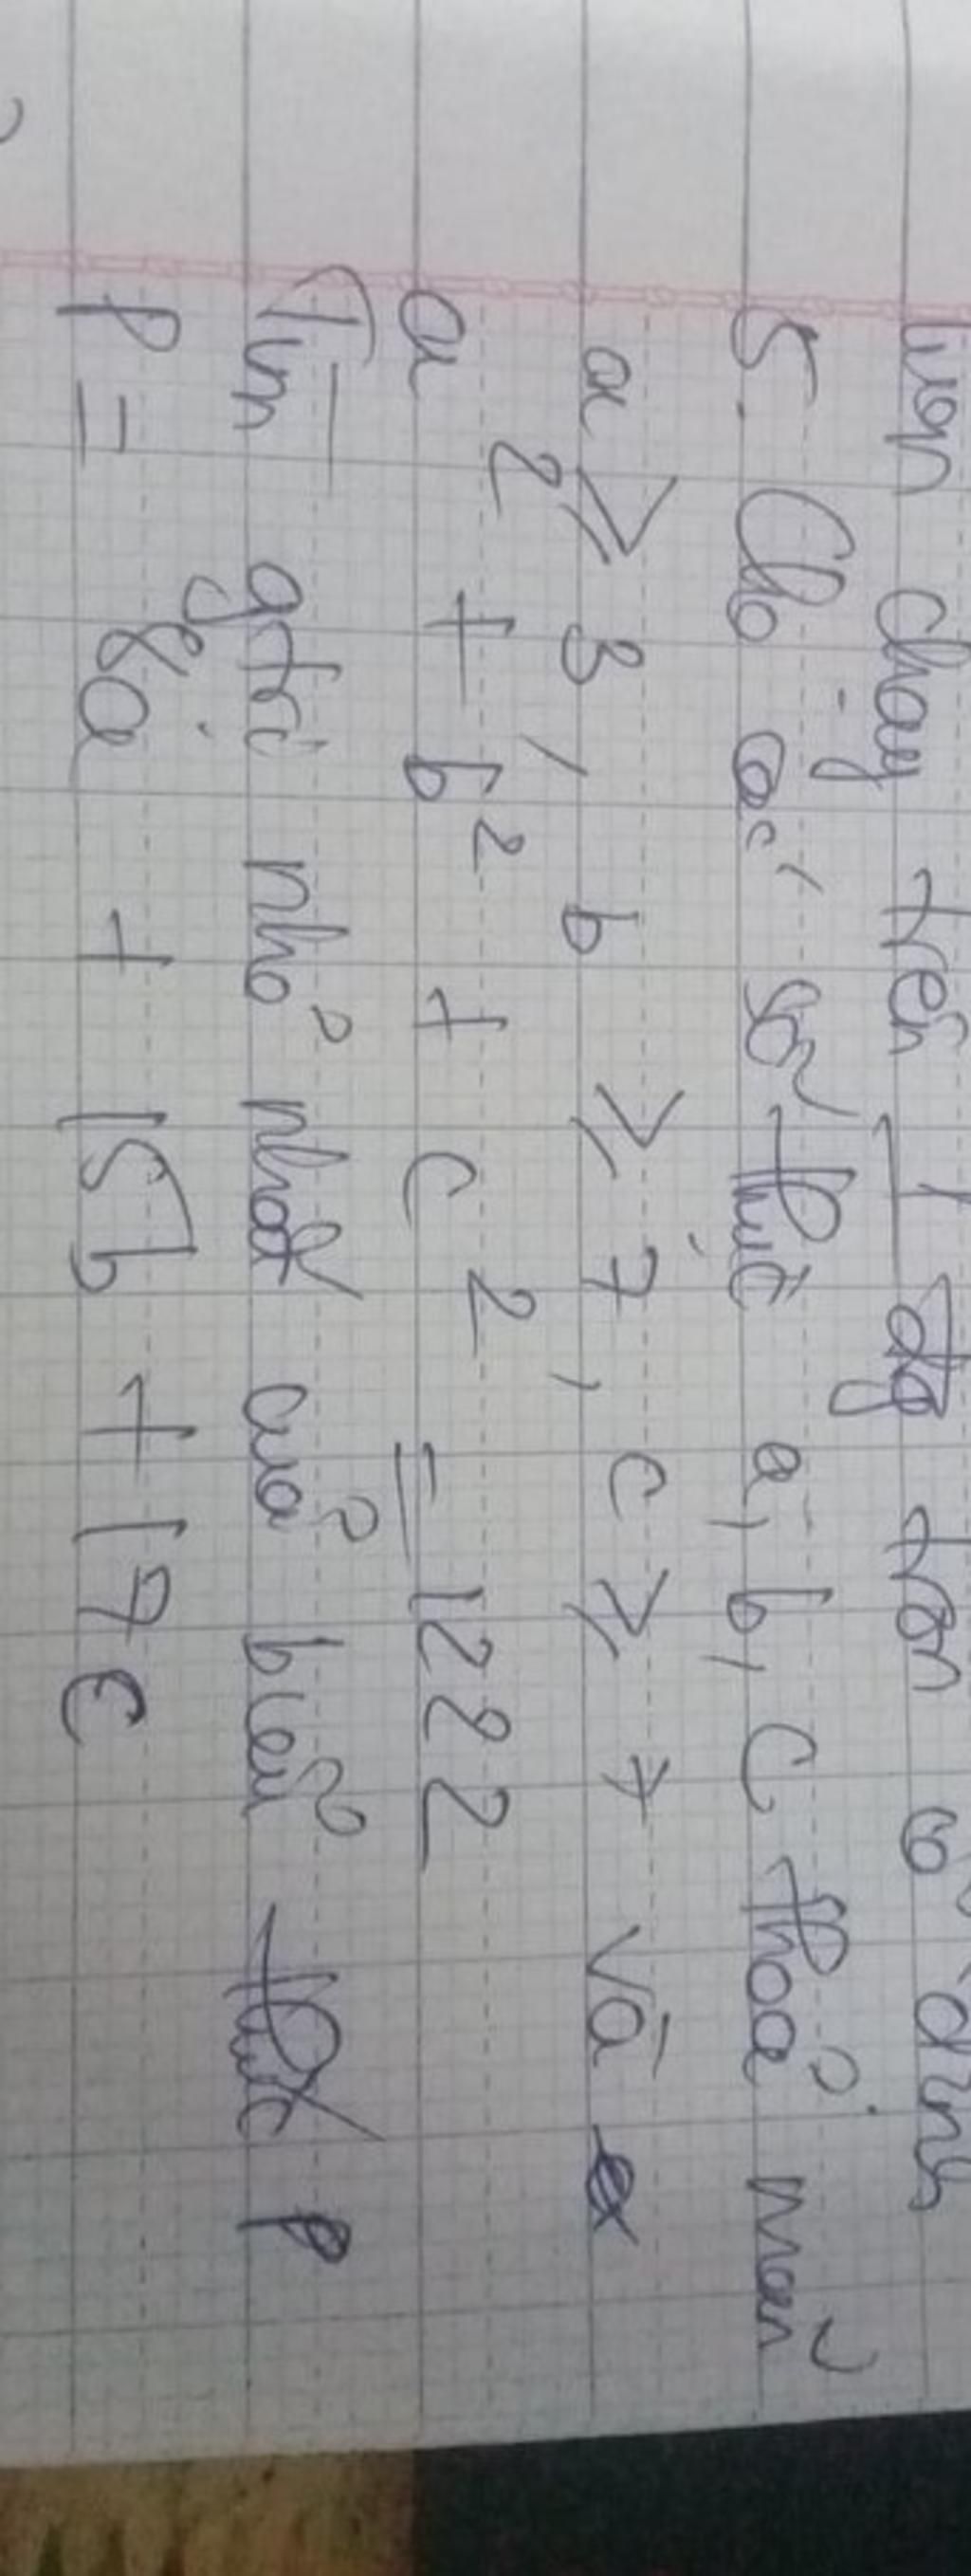 chạy trên 1 đg tròn có đính
5. Cho các số thực a, b, c thoả mãn
a ≥ 3, b ≥ 7, c ≥ 7 và
a² + b² + c² = 1222
Tìm gtrị nhỏ nhất của biểu thức P
P = 8a + 15b + 17c